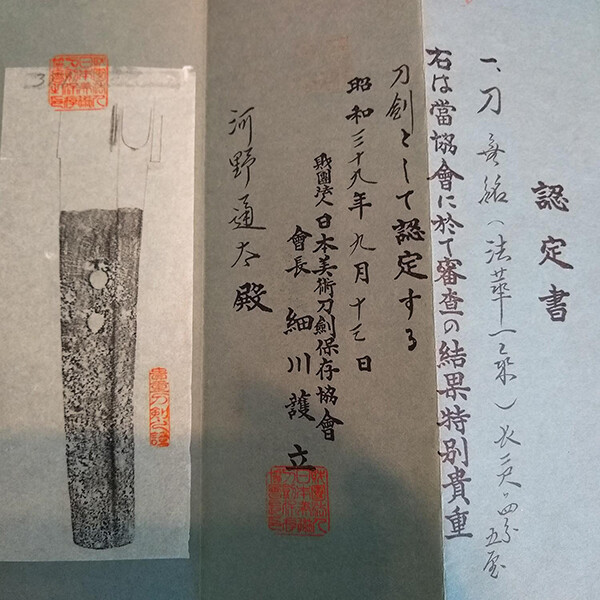 認定書
一、刀 無銘(法華一乗)長二尺、四分五厘
右は當協會に於て審査の結果特別貴重
刀劍として認定する
昭和三十九年九月十三日
財團法人日本美術刀劍保存協會
會長 細川護立
河野通太殿